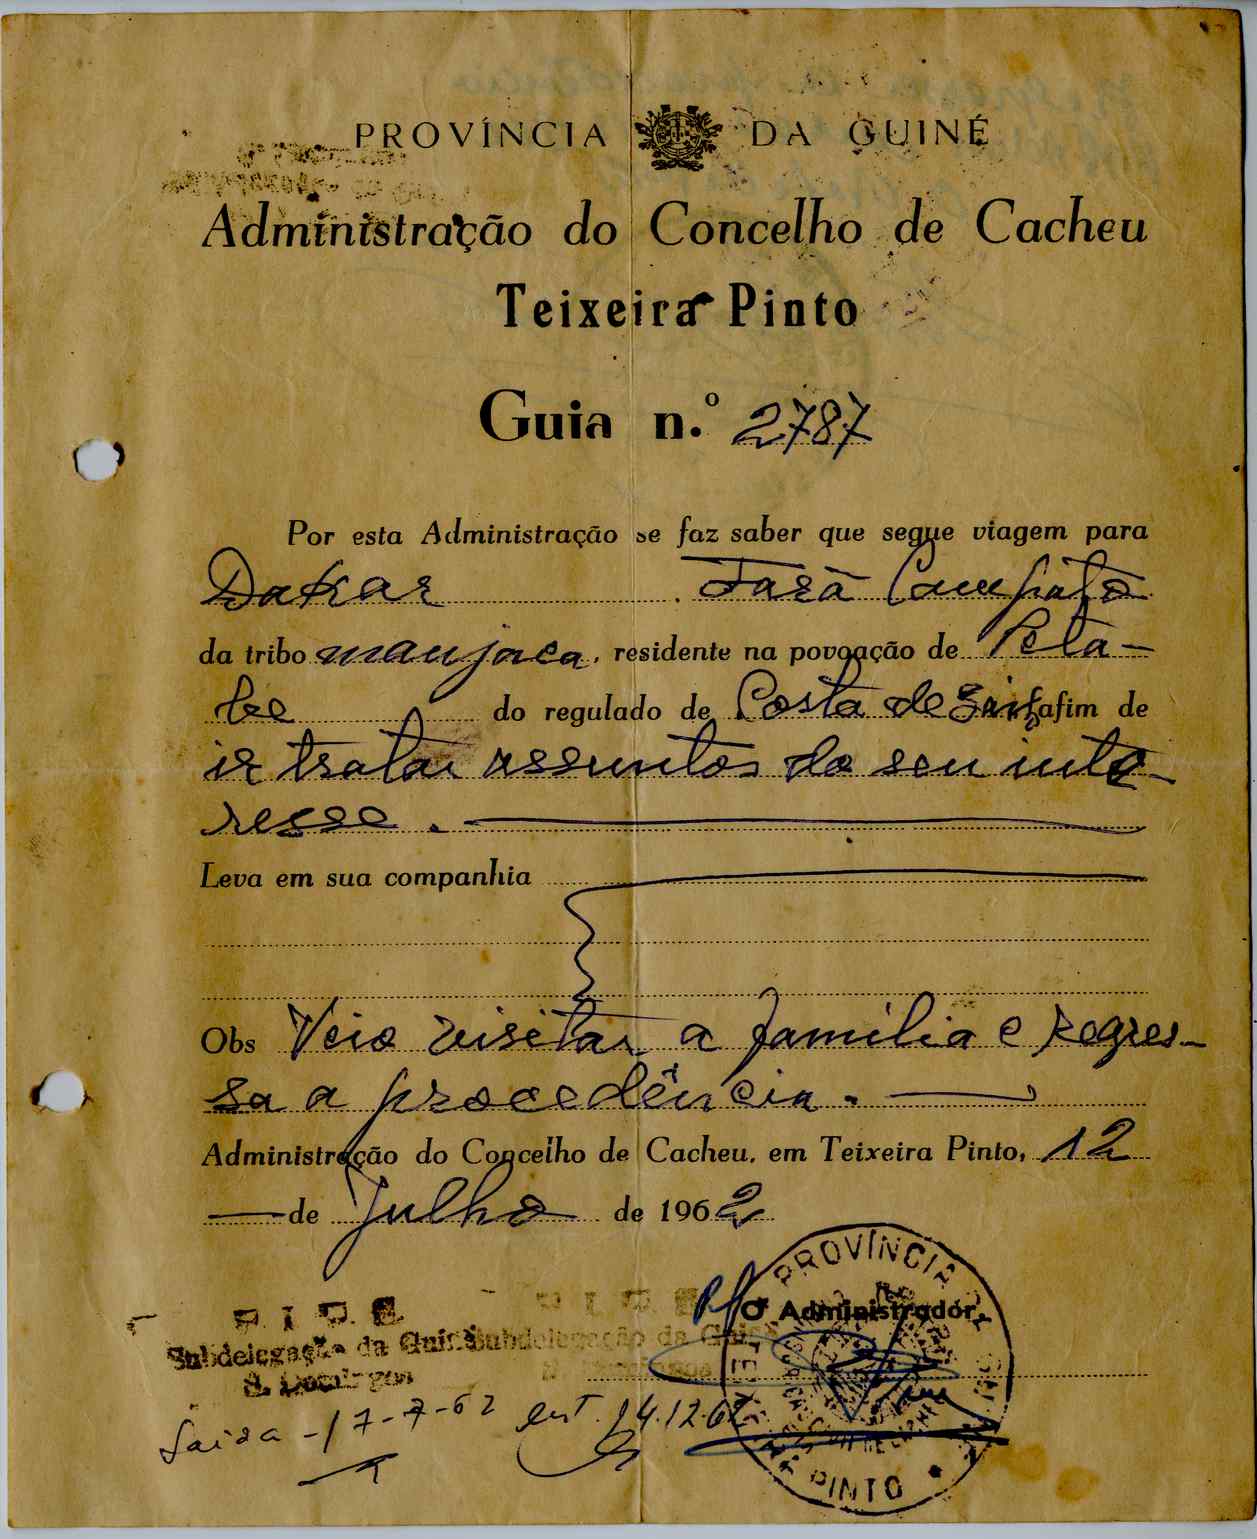 PROVÍNCIA DA GUINÉ
Administração do Concelho de Cacheu
Teixeira Pinto
Guia n.º 2787
Por esta Administração se faz saber que segue viagem para
Dakar Jará Campató
da tribo manjaca, residente na povoação de Peta-
be do regulado de Costa de Baixo afim de
ir tratar assuntos do seu inte-
resse.
Leva em sua companhia
Obs Veio visitar a família e regres-
sa a procedência.
Administração do Concelho de Cacheu, em Teixeira Pinto, 12
de Julho de 1962
PROVÍNCIA
O Administrador,
P I D E P I D E
Subdelegação da Guiné Subdelegação da Guiné
S. Domingos
Saida - 17-7-62 ent. 14.12.62
PINTO